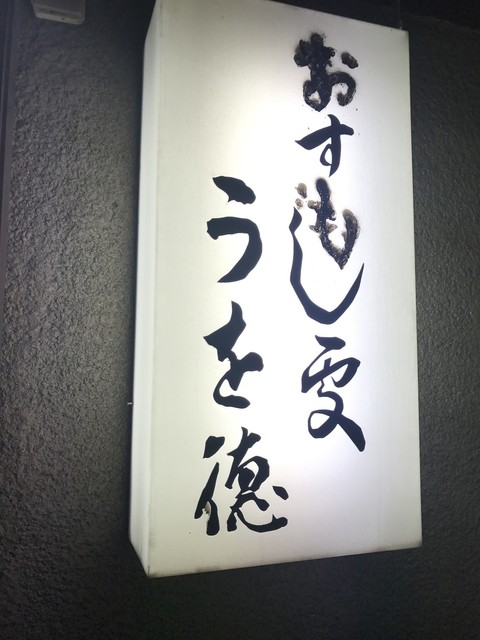 おすもし處
うを徳